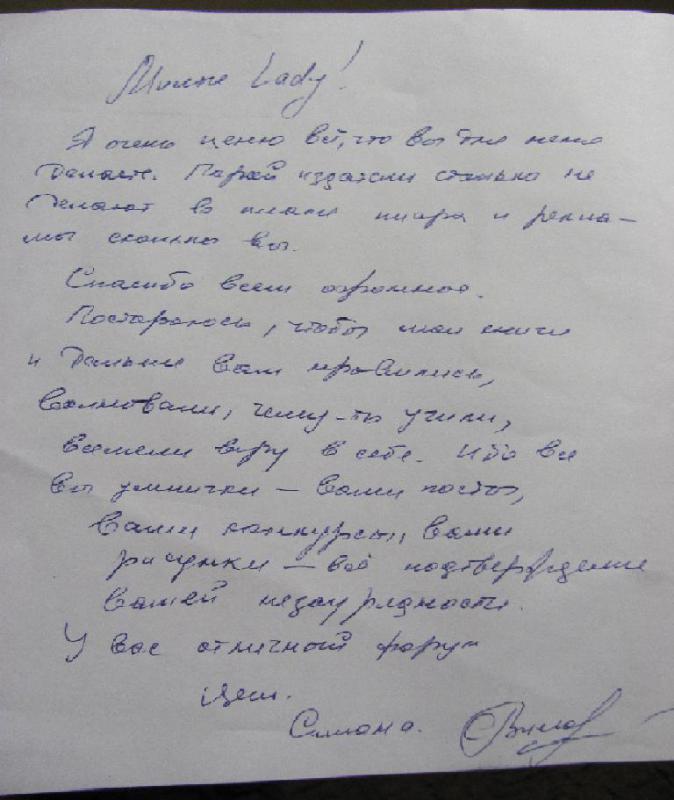 Милые Lady!
Я очень ценю всё, что вы для меня
делаете. Порой издатели столько не
делают в плане пиара и рекла-
мы сколько вы.
Спасибо всем огромное.
Постараюсь, чтобы мои книги
и дальше вам нравились,
волновали, чему-то учили,
вселяли веру в себя. Ибо все
вы умнички — ваши посты,
ваши конкурсы, ваши
рисунки — всё подтверждение
вашей незаурядности.
У вас отличный форум
Цем.
Симона.